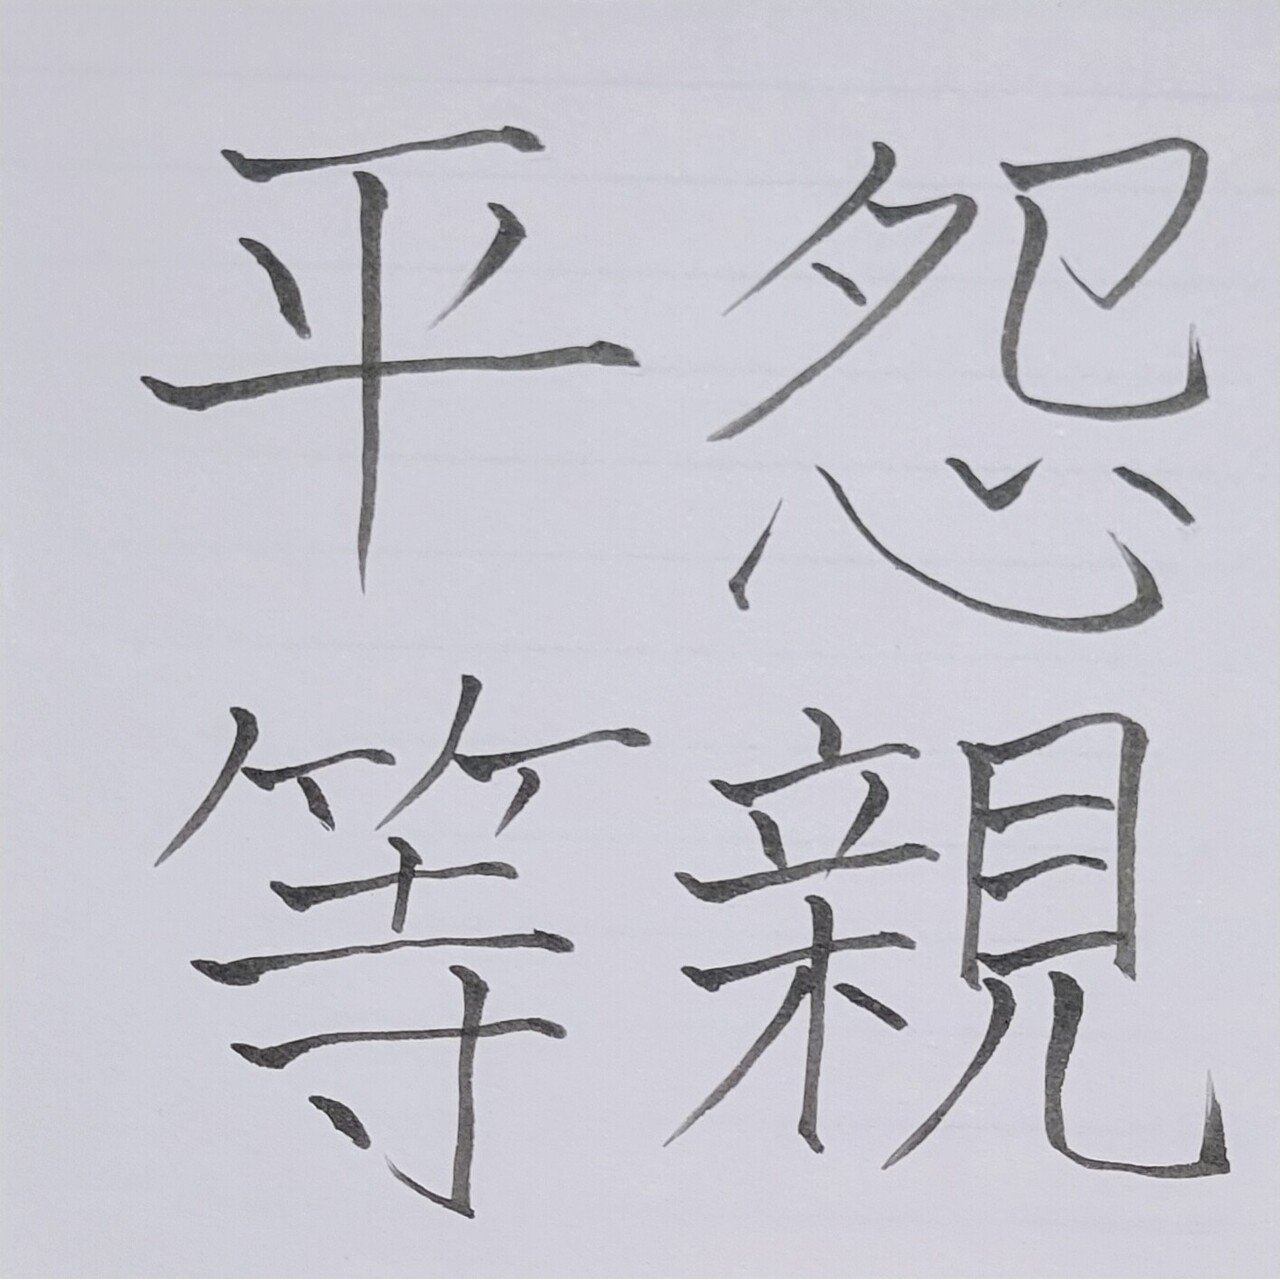 怨親
平等